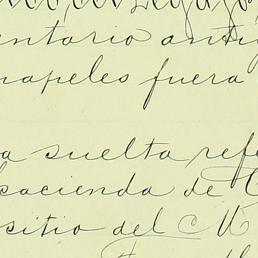 entario anti
papeles fuera
a suelta refe
hacienda de
sitio del M